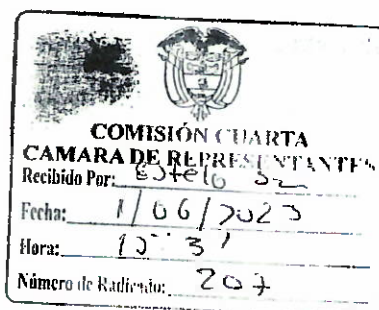 COMISIÓN CUARTA
CAMARA DE REPRESENTANTES
Recibido Por:
Fecha: 1/06/2023
Hora:
Número de Radicado: 207